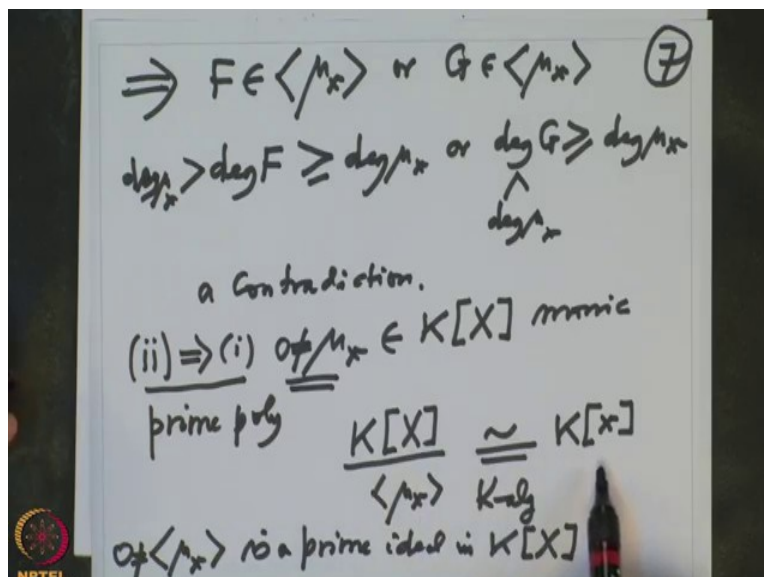 ⇒ F ∈ ⟨μ_x⟩ or G ∈ ⟨μ_x⟩ ⑦
deg μ_x > deg F ≥ deg μ_x or deg G ≥ deg μ_x
∧
deg μ_x
a contradiction.
(ii) ⇒ (i) 0 ≠ μ_x ∈ K[X] monic
prime poly K[X] ≃ K[x]
⟨μ_x⟩ K-alg
0 ≠ ⟨μ_x⟩ is a prime ideal in K[X]
NPTEL